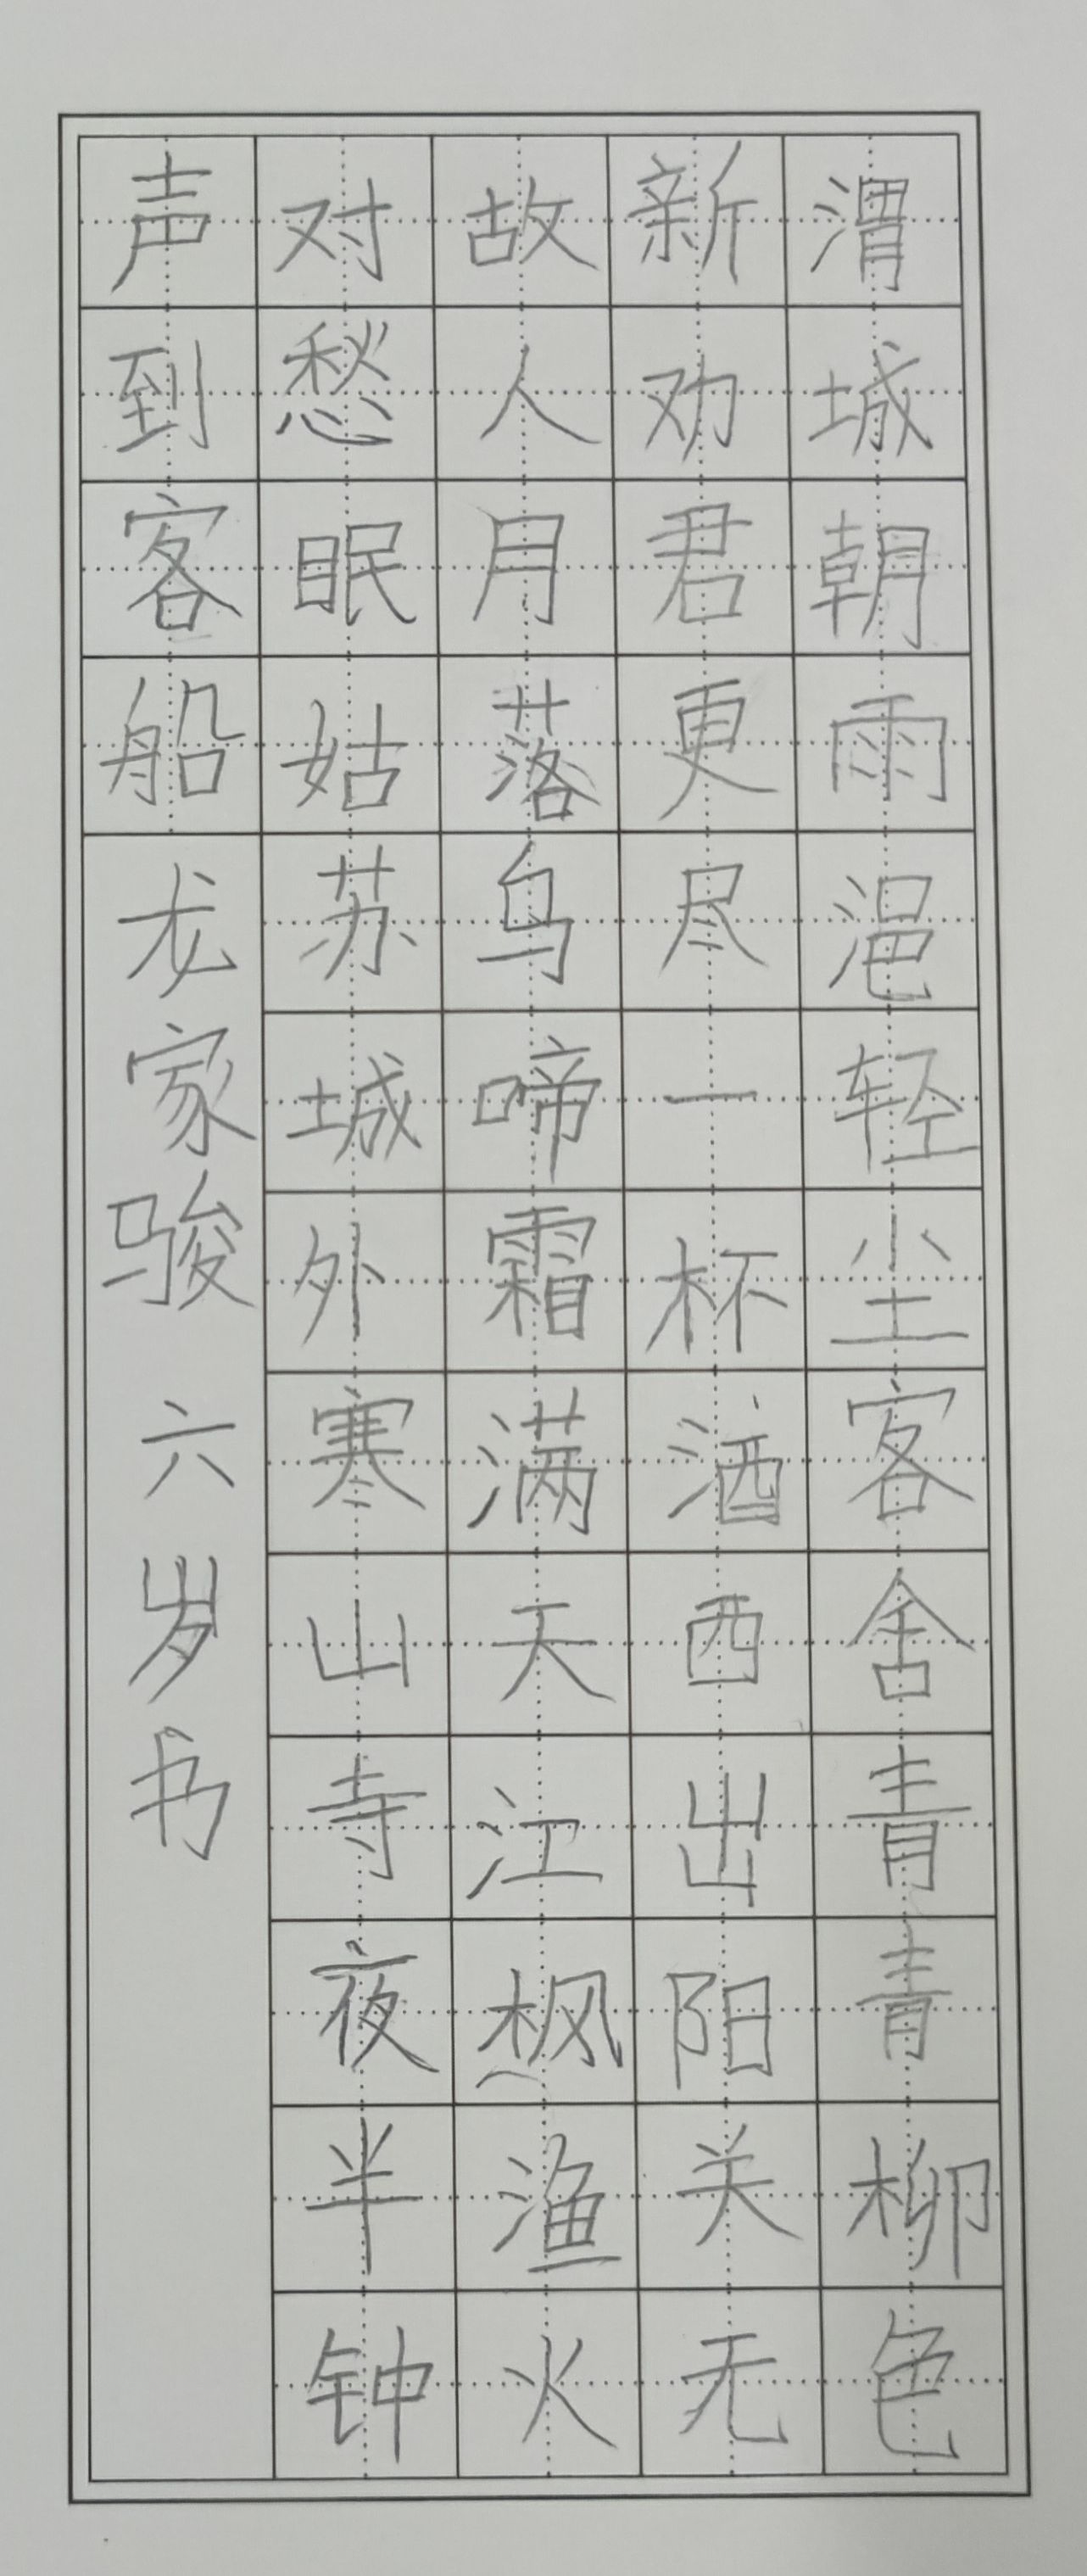 渭城朝雨浥轻尘客舍青青柳色
新劝君更尽一杯酒西出阳关无
故人月落乌啼霜满天江枫渔火
对愁眠姑苏城外寒山寺夜半钟
声到客船龙家骏六岁书